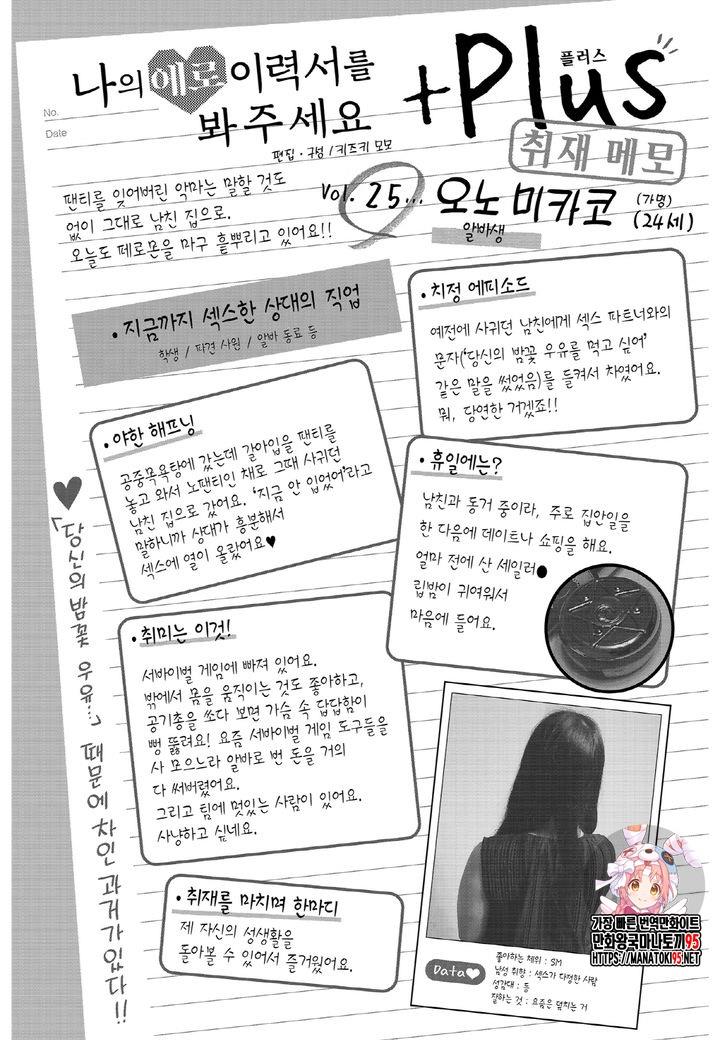 No.
Date
나의 에로 이력서를
봐주세요
+Plus
플러스
취재 메모
편집·구성/키즈키 모모
팬티를 잊어버린 악마는 말할 것도
없이 그대로 남친 집으로.
오늘도 페로몬을 마구 흩뿌리고 있어요!!
Vol. 25... 오노 미카코 (가명)
(24세)
알바생
·지금까지 섹스한 상대의 직업
학생 / 파견 사원 / 알바 동료 등
·치정 에피소드
예전에 사귀던 남친에게 섹스 파트너와의
문자('당신의 밤꽃 우유를 먹고 싶어'
같은 말을 썼었음)를 들켜서 차였어요.
뭐, 당연한 거겠죠!!
·야한 해프닝
공중목욕탕에 갔는데 갈아입을 팬티를
놓고 와서 노팬티인 채로 그때 사귀던
남친 집으로 갔어요. '지금 안 입었어'라고
말하니까 상대가 흥분해서
섹스에 열이 올랐어요♥
·휴일에는?
남친과 동거 중이라, 주로 집안일을
한 다음에 데이트나 쇼핑을 해요.
얼마 전에 산 세일러●
립밤이 귀여워서
마음에 들어요.
♥「당신의 밤꽃 우유…」 때문에 차인 과거가 있다!!
·취미는 이것!
서바이벌 게임에 빠져 있어요.
밖에서 몸을 움직이는 것도 좋아하고,
공기총을 쏘다 보면 가슴 속 답답함이
뻥 뚫려요! 요즘 서바이벌 게임 도구들을
사 모으느라 알바로 번 돈을 거의
다 써버렸어요.
그리고 팀에 멋있는 사람이 있어요.
사냥하고 싶네요.
·취재를 마치며 한마디
제 자신의 성생활을
돌아볼 수 있어서 즐거웠어요.
Data♥
좋아하는 체위 : SM
남성 취향 : 섹스가 다정한 사람
성감대 : 등
잘하는 것 : 요즘은 덮치는 거
가장 빠른 번역만화이트
만화왕국마나토끼95
HTTPS://MANATOKI95.NET